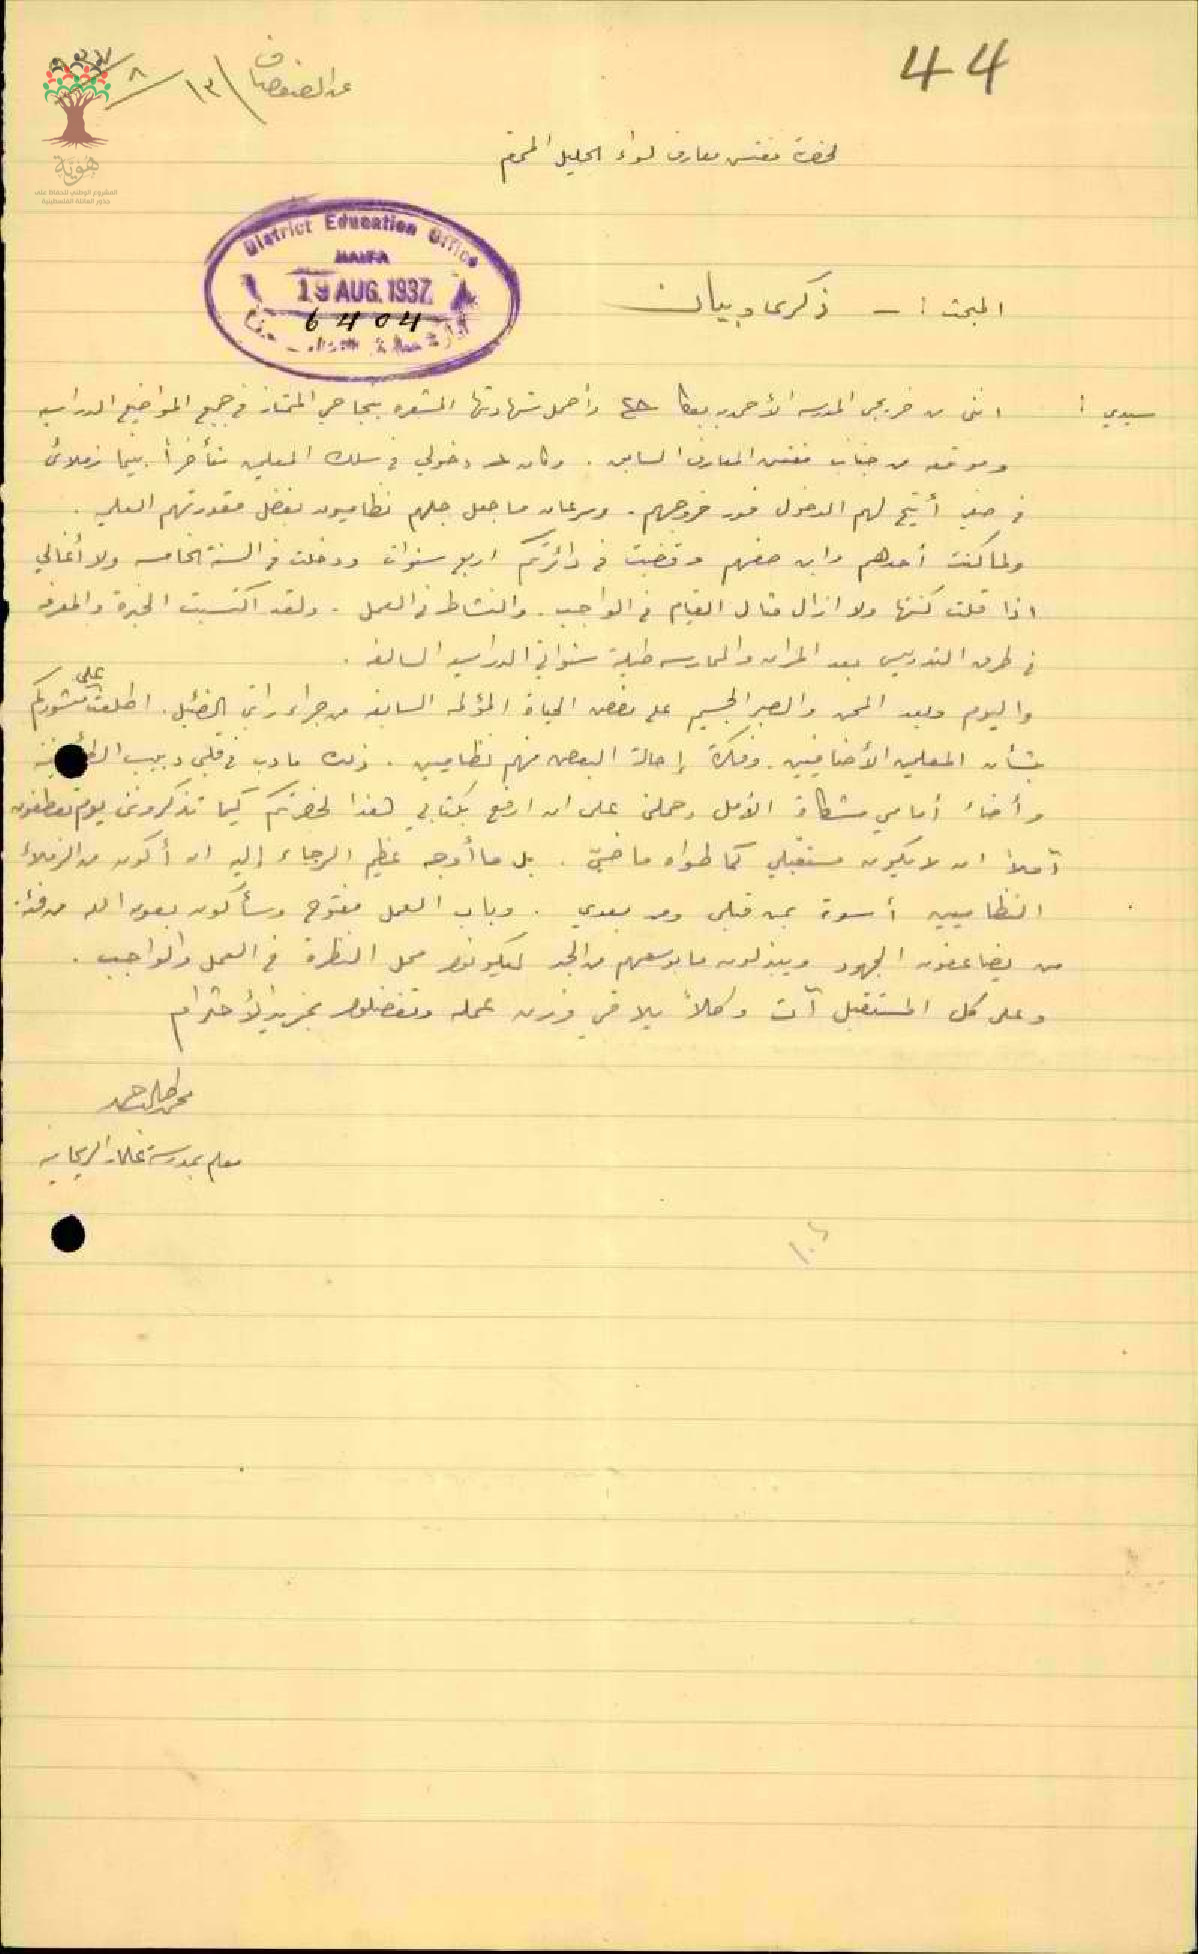 44
١٣/٨/
لحضرة مفتش معارف لواء الجليل المحترم
District Education Office
HAIFA
19 AUG. 1937
6404
المبحث :- ذكرى وبيان
سيدي : انني من خريجي المدرسه الأحمديه بعكا واحمل شهادتها المشعره بنجاحي الممتاز في جميع المواضيع الدراسيه
وموقعه من جناب مفتش المعارف السابق . وكان دخولي في سلك المعلمين متأخراً بينما زملائي
في صفي أتيح لهم الدخول فور خروجهم . وسرعان ما جعل جلهم نظاميون بفضل مقدرتهم العلميه .
ولما كنت أحدهم وابن صفهم وقضيت في دائرتكم اربع سنوات ودخلت في السنة الخامسه ولا أغالي
اذا قلت كنتها ولا ازال مثال القيام في الواجب . والنشاط في العمل . ولقد اكتسبت الخبرة والمعرفه
في طرق التدريس بعد المران والممارسه طيلة سنواتي الدراسيه السالفه .
واليوم وبعد المحن والصبر الجسيم على مضض الحياة المؤلمه السابقه من جراء راتبي الضئيل . اطلعت على منشوركم
بشأن المعلمين الأضافيين . وفكرة إحالة البعض منهم نظاميين . ذلك ما دب في قلبي دبيب الطمأنينة
وأضاء أمامي مشكاة الأمل وحملني على ان ارفع بكتابي هذا لحضرتكم كيما تذكرونني يوم تعطفون
آملاً ان لا يكون مستقبلي كما طواه ماضيّ . بل ما أوجه عظيم الرجاء إليه ان أكون من الزملاء
النظاميين أسوة بمن قبلي ومن بعدي . وباب العمل مفتوح وسأكون بعون الله من فئة
من يضاعفون الجهود ويبذلون ما بوسعهم من الجد ليكونوا محل النظرة في العمل والواجب .
وعلى كل المستقبل آت وكلاً يلاقي وزن عمله وتفضلوا بمزيد الأحترام
معلم بمدرسة الريحانيه
هُوِيَّة
المشروع الوطني للحفاظ على
جذور العائلة الفلسطينية